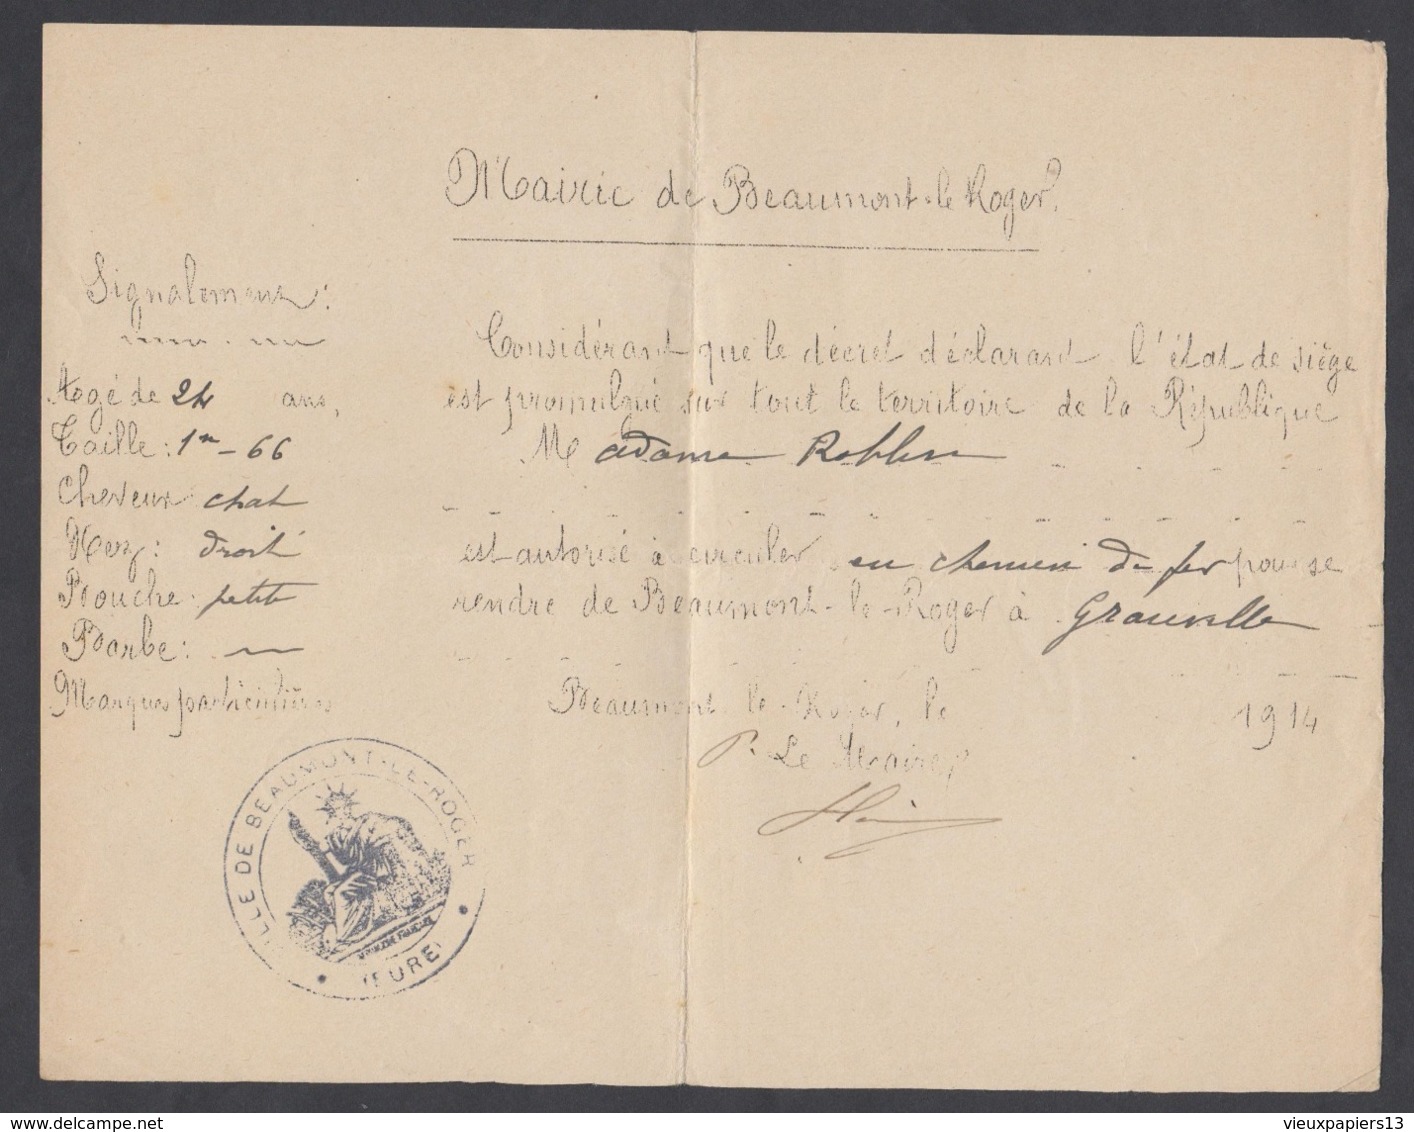 Mairie de Beaumont-le Roger.
Signalement:
Agé de 24 ans,
Taille: 1m-66
Cheveux: chat
Nez: droit
Bouche: petite
Barbe: ~
Marques particulières
Considérant que le décret déclarant l'état de siège
est promulgué sur tout le territoire de la République
Madame
est autorisé à circuler en chemin de fer pour se
rendre de Beaumont-le-Roger à Granville
Beaumont-le-Roger, le 1914
P. Le Maire,
VILLE DE BEAUMONT-LE-ROGER
(EURE)
vieuxpapiers13